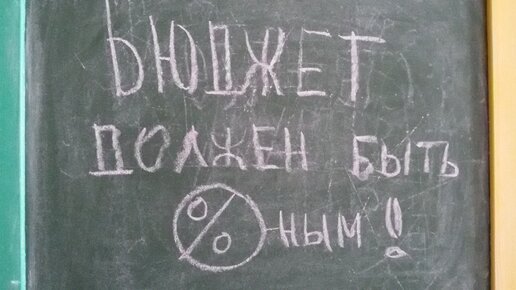 БЮДЖЕТ
ДОЛЖЕН БЫТЬ
%ным!